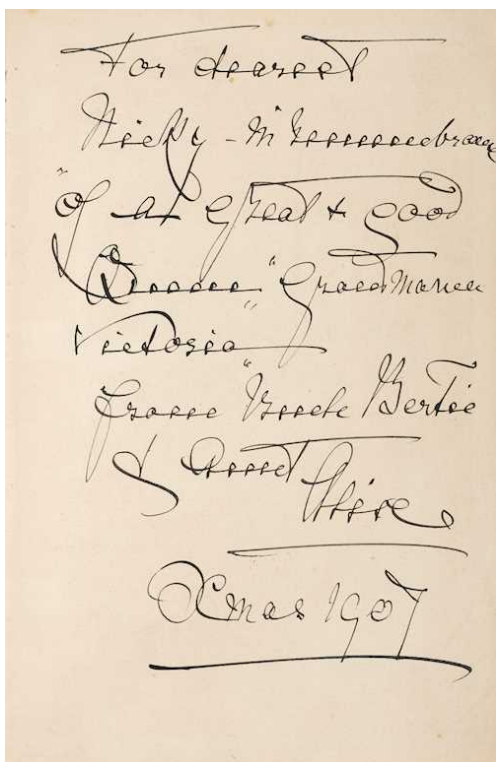 For dearest
Nicky - in remembrance
"of a great & good
Queen" Grand Mama
Victoria"
from "Uncle Bertie
& Aunt
Alix
Xmas 1907